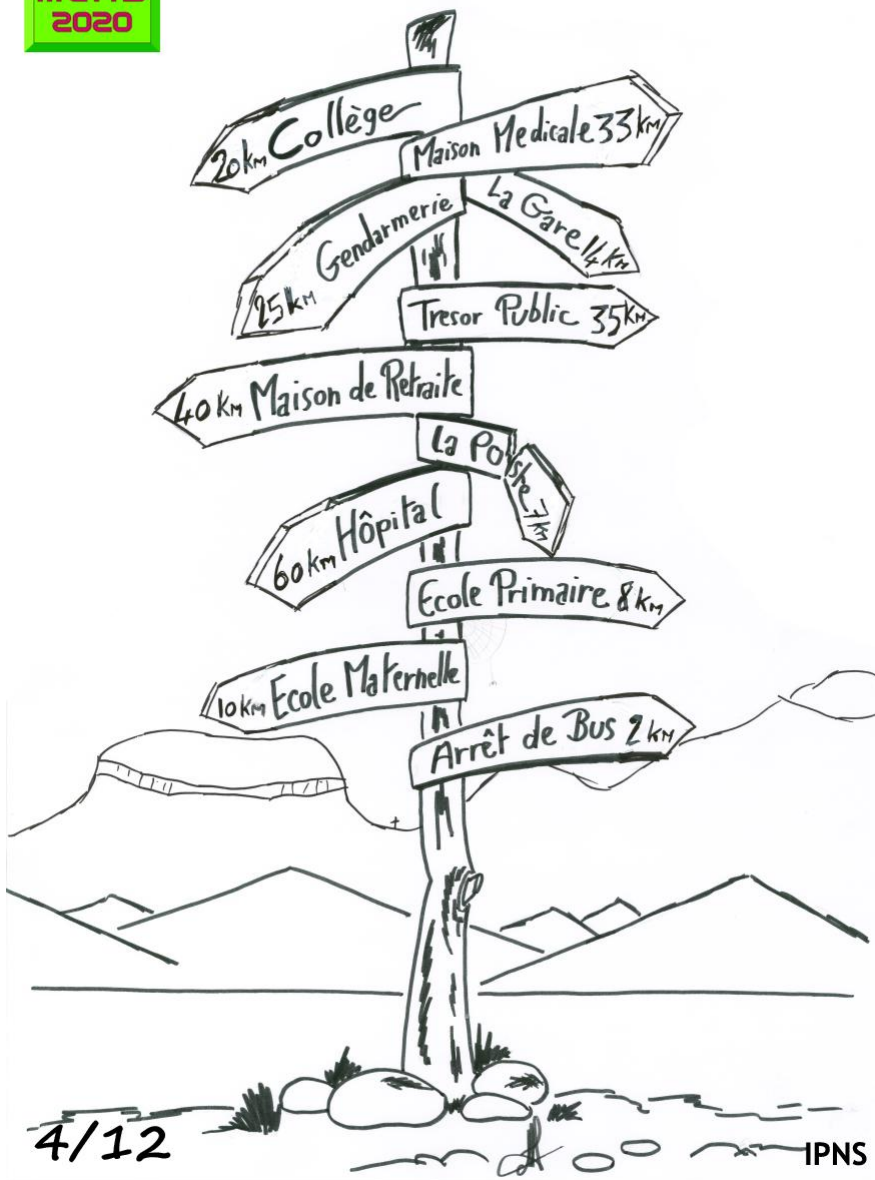 2020
20 km Collège
Maison Medicale 33 km
Gendarmerie
25 km
La Gare 14 km
Tresor Public 35 km
40 km Maison de Retraite
La Poste 7 km
60 km Hôpital
Ecole Primaire 8 km
10 km Ecole Maternelle
Arrêt de Bus 2 km
4/12
IPNS